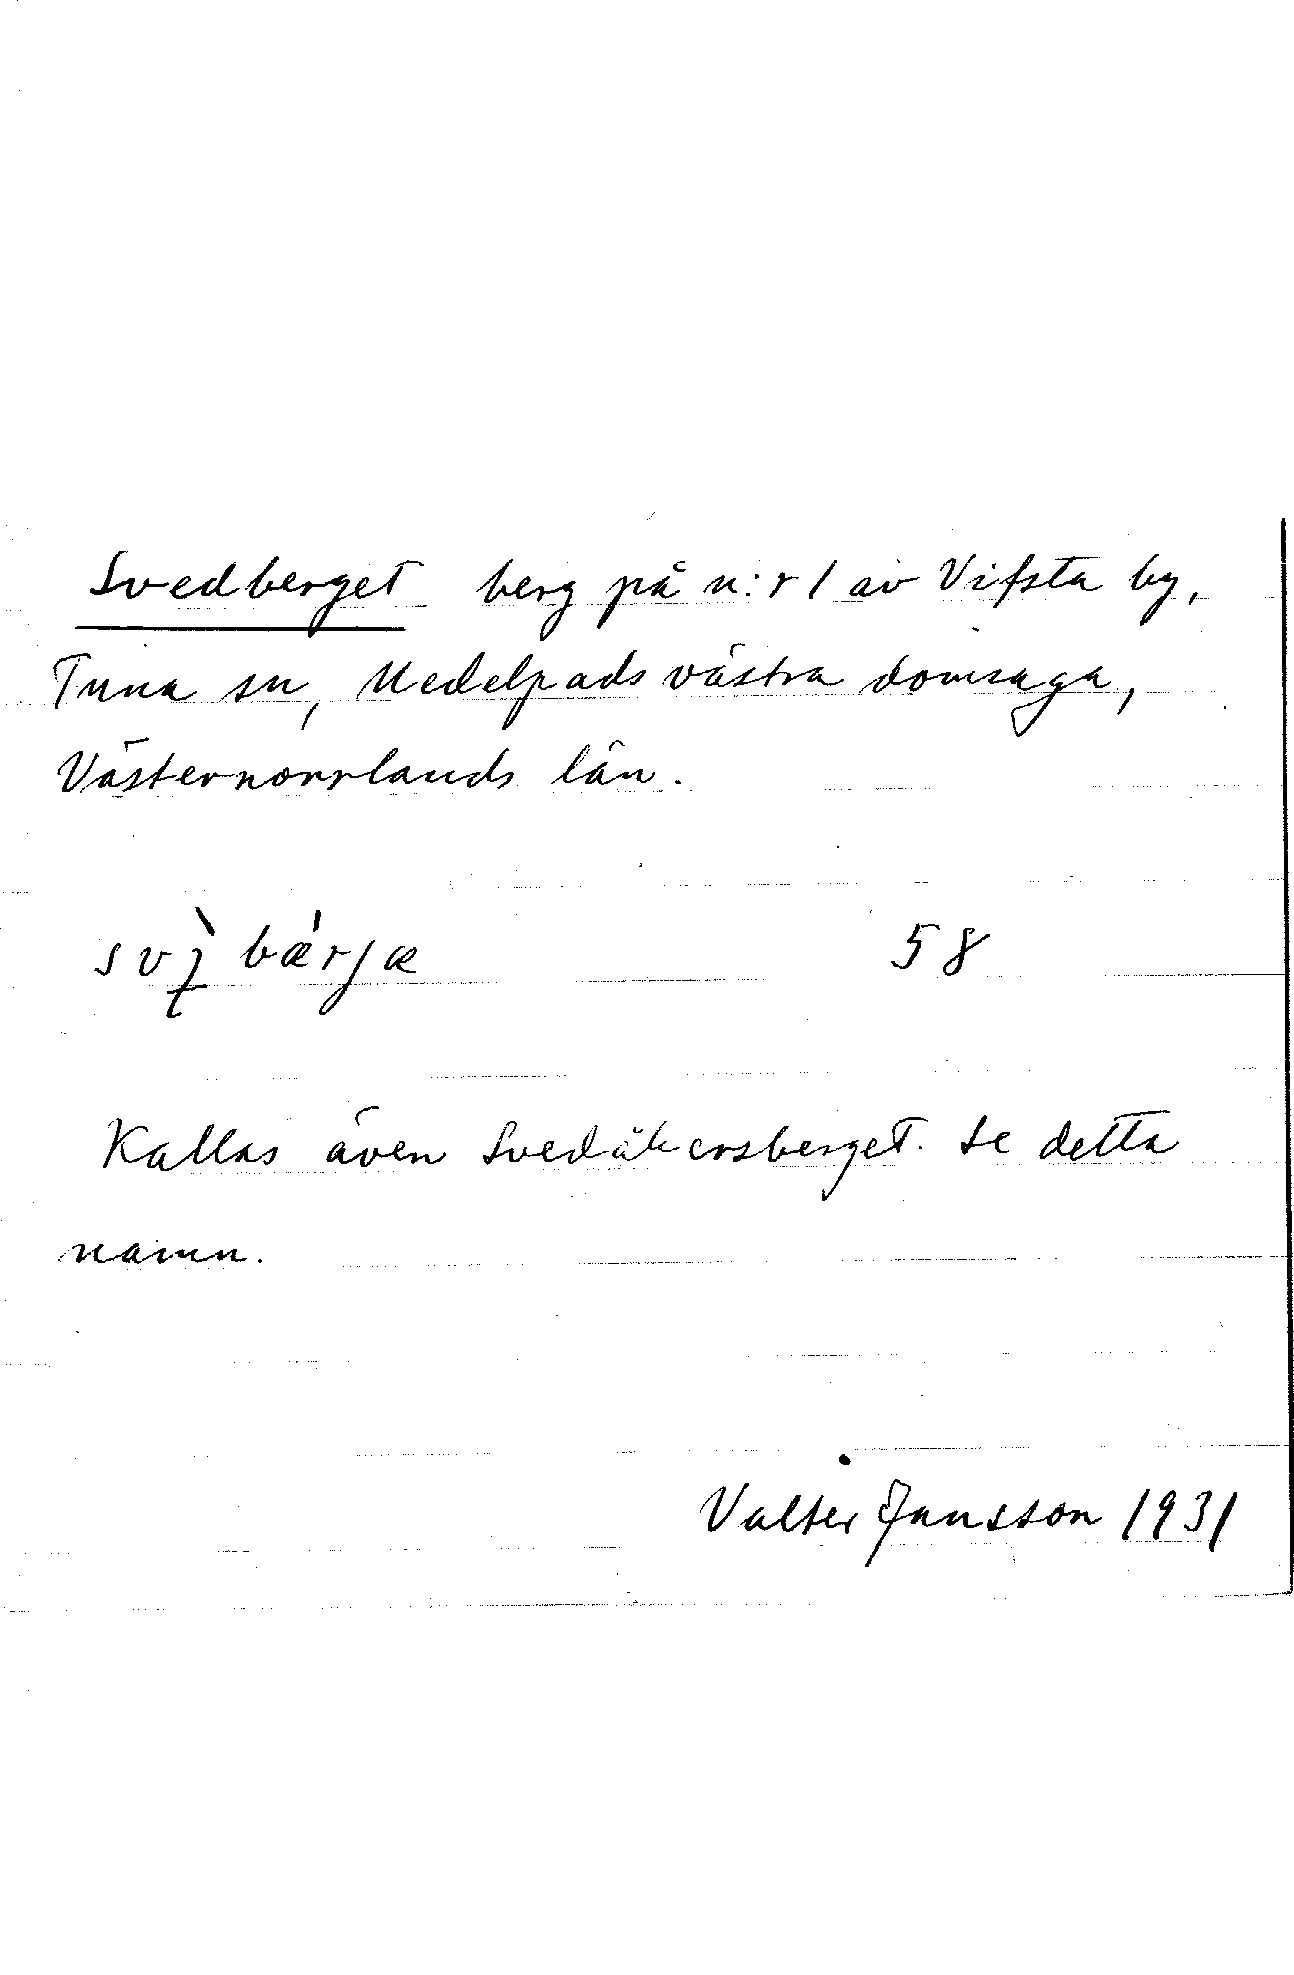 Svedberget berg på n:r 1 av Vifsta by,
Tuna sn, Medelpads västra domsaga,
Västernorrlands län.
58
Kallas även Svedåkersberget. Se detta
namn.
Valter Jansson 1931